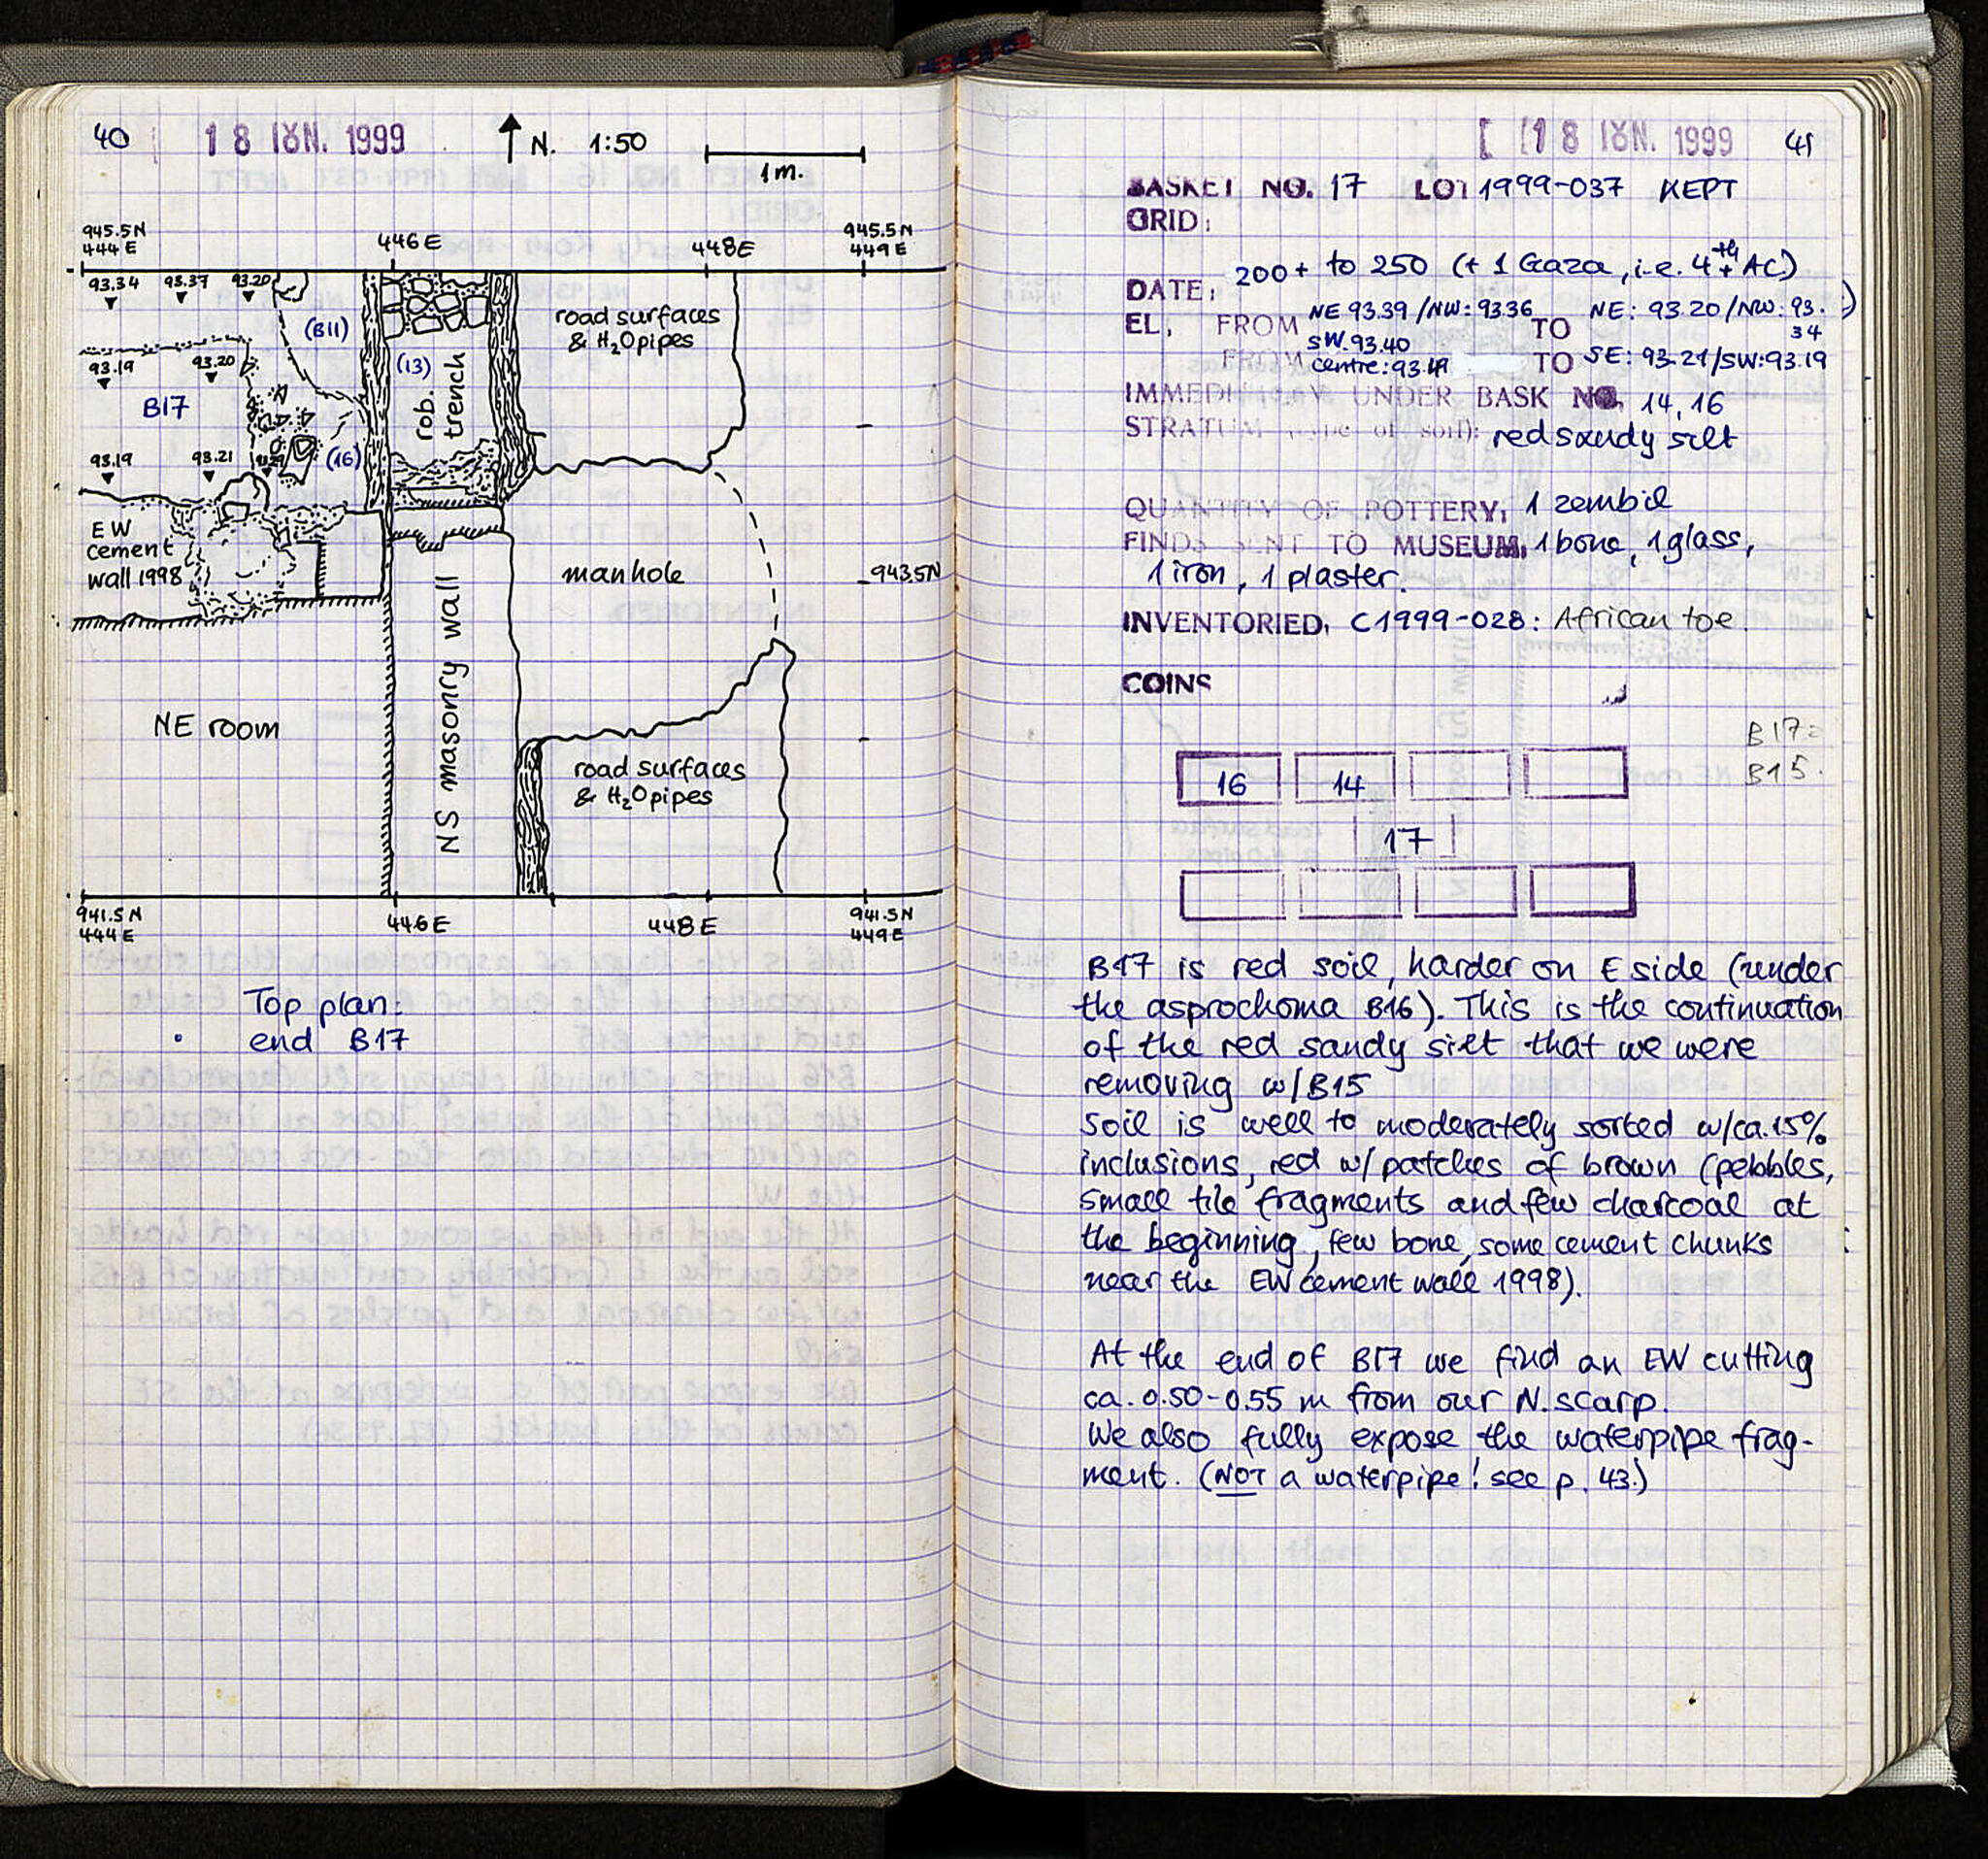 40
18 ΙΟΥΝ. 1999
N. 1:50
1m.
945.5N
444 E
446 E
448E
945.5N
449 E
93.34 93.37 93.20
(B11)
road surfaces
& H₂O pipes
93.19 93.20
(13)
rob.
trench
B17
93.19 93.21
(16)
EW
cement
wall 1998
manhole
943.5N
NS masonry wall
NE room
road surfaces
& H₂O pipes
941.5N
444 E
446 E
448 E
941.5N
449 E
Top plan:
end B17
18 ΙΟΥΝ. 1999
41
BASKET NO. 17 LOT 1999-037 KEPT
GRID:
DATE: 200+ to 250 (+ 1 Gaza, i.e. 4th + AC)
EL, FROM NE 93.39/NW: 93.36 TO NE: 93.20/NW: 93.34
SW. 93.40
FROM centre: 93.19 TO SE: 93.21/SW: 93.19
IMMEDIATELY UNDER BASK NO. 14, 16
STRATUM (type of soil): red sandy silt
QUANTITY OF POTTERY, 1 zembil
FINDS SENT TO MUSEUM, 1 bone, 1 glass,
1 iron, 1 plaster.
INVENTORIED, C1999-028: African toe.
COINS
B17=
B15.
16 14
17
B17 is red soil, harder on E side (under
the asprochoma B16). This is the continuation
of the red sandy silt that we were
removing w/B15
Soil is well to moderately sorted w/ca.15%
inclusions, red w/patches of brown (pebbles,
small tile fragments and few charcoal at
the beginning, few bone, some cement chunks
near the EW cement wall 1998).
At the end of B17 we find an EW cutting
ca. 0.50-0.55 m from our N. scarp.
We also fully expose the waterpipe frag-
ment. (NOT a waterpipe! see p. 43.)